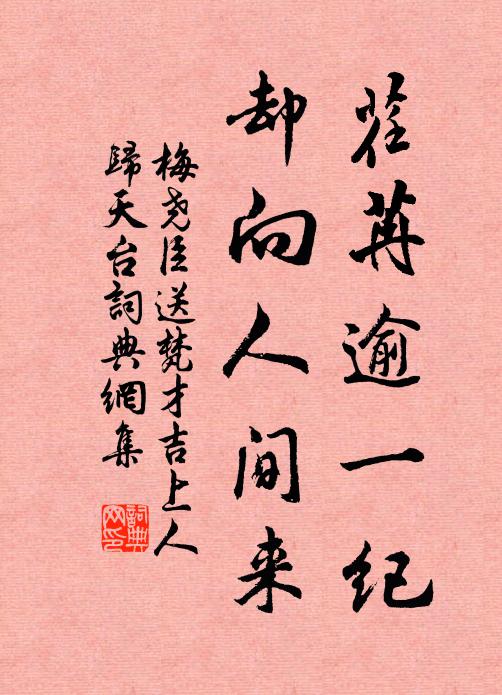 荏苒逾一纪
却向人间来
梅尧臣送梵才吉上人
歸天台詞典網集
詞典
网印